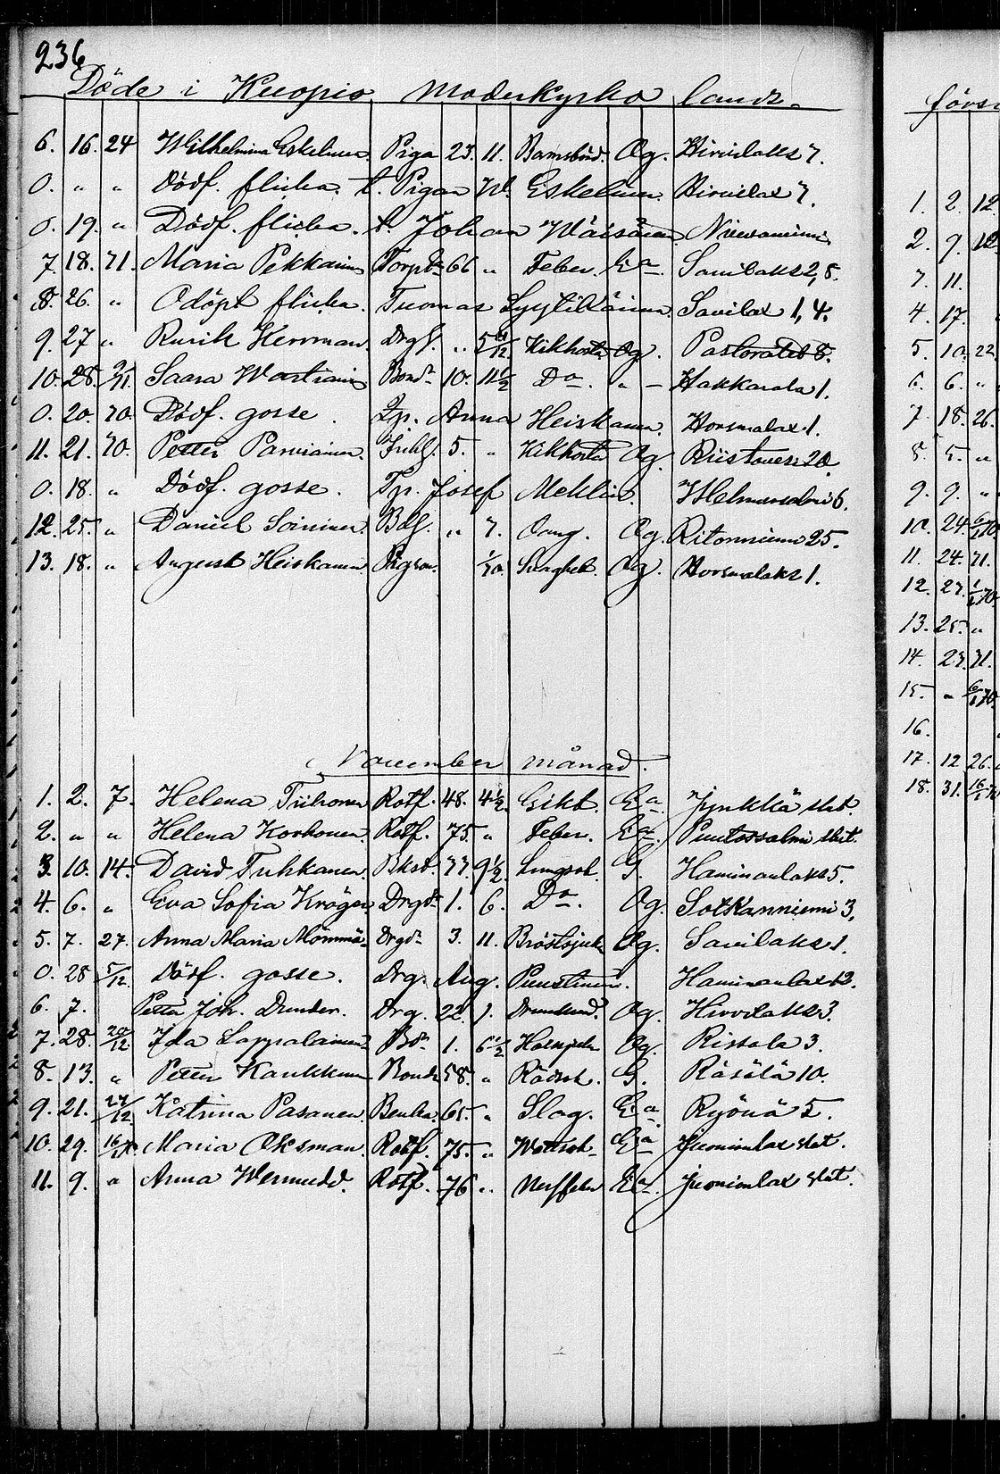 236
Döde i Kuopio Moderkyrko lands
6. 16. 24 Wilhelmina Eskelinen. Piga 23. 11. Barnsbörd. Og. Hirvilaks 7.
0. " " Dödf. flicka. t. Pigan W. Eskelinen. Hirvilax 7.
0. 19. " Dödf. flicka. t. Johan Wäisänen
7. 18. 71. Maria Pekkarin Torp 66 " Feber. Ea. Savilaks 2, 8.
8. 26. " Odöpt flicka. Tuomas Lyytikäinen Savilax 1, 4.
9. 27 " Rurik Herrman. Drgs. " Kikhosta Og. Pastoratet 8.
10. 28. Saara Wartiain Bond 10. 11 1/2 Do. " - Hakkarala 1.
0. 20. 70. Dödf. gosse. Tp. Anna Heiskanen. Horsmalax 1.
11. 21. 70. Petter Parviainen. Inhs. 5. " Kikhosta Og. Riistavesi 20.
0. 18. " Dödf. gosse. Tp. Josef 6.
12. 25. " Daniel Soininen Bds. " 7. Og. Ritoniemi 25.
13. 18. " August Heiskanen Pigson. 1/10. Slaghet. Og. Horsmalaks 1.
November månad.
1. 2. 7. Helena Tiihonen Rotf. 48. 4 1/2 Gikt. Ea. Jynkkä slat.
2. " " Helena Korhonen. Rotf. 75. " Feber. Ea. Puutossalmi slat.
3. 10. 14. David Tuhkanen Bksd. 77. 9 1/2. Lungsot. G. Haminanlaks 5.
4. 6. " Eva Sofia Kröger Drgdr 1. 6. Do. Og. Sotkanniemi 3.
5. 7. 27. Anna Maria Mömmö Drgdr 3. 11. Bröstsjuk Og. Savilaks 1.
0. 28 5/12 Dödf. gosse. Drg. Aug. Puustinen.
6. 7. Petter Joh. Drg. 22. 1. Og. Hirvilaks 3.
7. 28. 20/12 Ida Lappalainen Bdr 1. 6 1/2 Og. Ristola 3.
8. 13. " Petter Kaukkunen Bonde 58. " Rödsot. G. Räsälä 10.
9. 21. 27/12. Katrina Pasanen Benka 65. " Slag. Ea. Ryönä 5.
10. 29. Maria Oksman. Rotf. 75. " Wattsot Ea Juonionlax slat.
11. 9. " Anna Wermudd. Rotf. 76 " Nerffeber Ea. Juonionlax slat.
1. 2. 12
2. 9. 12
7. 11.
4. 17.
5. 10. 22
6. 6. "
7. 18. 26.
5. 5. "
9. 9. "
10. 24.
11. 24. 71.
12. 27.
13. 25. "
14. 27. 71.
15. "
16.
17. 12 26.
18. 31.